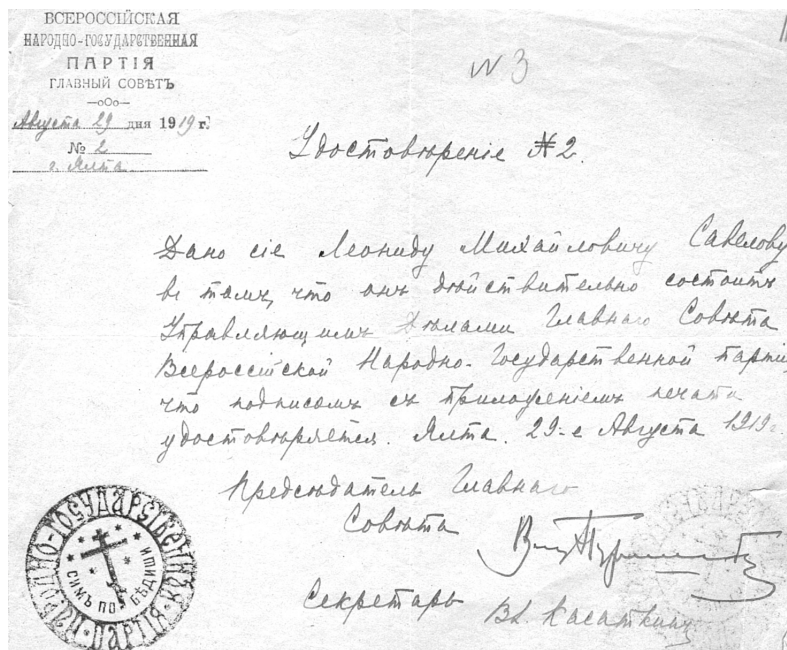 ВСЕРОССІЙСКАЯ
НАРОДНО-ГОСУДАРСТВЕННАЯ
ПАРТІЯ
ГЛАВНЫЙ СОВѢТЪ
—оОо—
Августа 29 дня 1919 г.
№ 2
г. Ялта
№ 3
Удостовѣреніе № 2.
Дано сіе Леониду Михайловичу Савелову
въ томъ, что онъ дѣйствительно состоитъ
Управляющимъ Дѣлами Главнаго Совѣта
Всероссійской Народно-Государственной партіи,
что подписомъ съ приложеніемъ печати
удостовѣряется. Ялта. 29-е Августа 1919 г.
Предсѣдатель Главнаго
Совѣта
Секретарь Вл. Касаткинъ
НАРОДНО-ГОСУДАРСТВЕННАЯ ПАРТІЯ
СИМЪ ПОБѢДИШИ